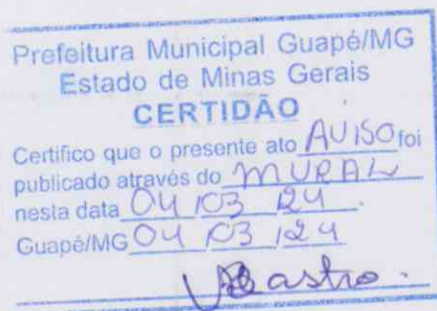 Prefeitura Municipal Guapé/MG
Estado de Minas Gerais
CERTIDÃO
Certifico que o presente ato AVISO foi
publicado através do MURAL
nesta data 04/03/24.
Guapé/MG 04/03/24